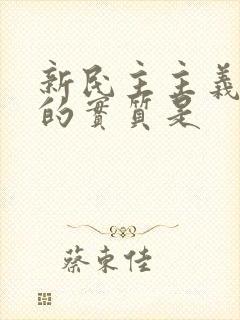 新民主主義
的實質是
蔡東佳